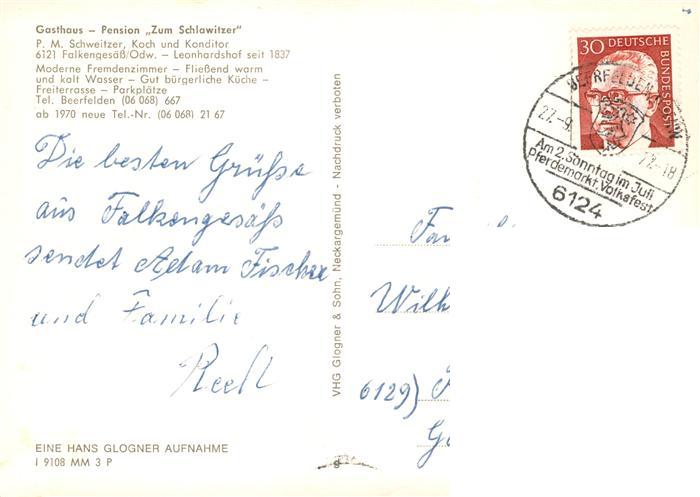 Gasthaus – Pension „Zum Schlawitzer"
P. M. Schweitzer, Koch und Konditor
6121 Falkengesäß/Odw. – Leonhardshof seit 1837
Moderne Fremdenzimmer – Fließend warm
und kalt Wasser – Gut bürgerliche Küche –
Freiterrasse – Parkplätze
Tel. Beerfelden (06 068) 667
ab 1970 neue Tel.-Nr. (06 068) 21 67
Die besten Grüße
aus Falkengesäß
sendet Adam Fischer
und Familie
EINE HANS GLOGNER AUFNAHME
I 9108 MM 3 P
VHG Glogner & Sohn, Neckargemünd - Nachdruck verboten
30 DEUTSCHE
BUNDESPOST
27.-9.
-18
Am 2. Sonntag im Juli
Pferdemarkt, Volksfest
6124
6129)